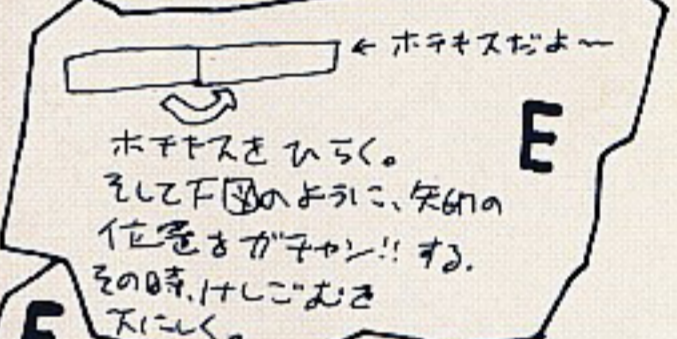 ← ホチキスだよ〜
E
ホチキスをひらく。
そして下図のように、矢印の
位置をガチャン!!する。
その時、けしごむを
下にしく。
E